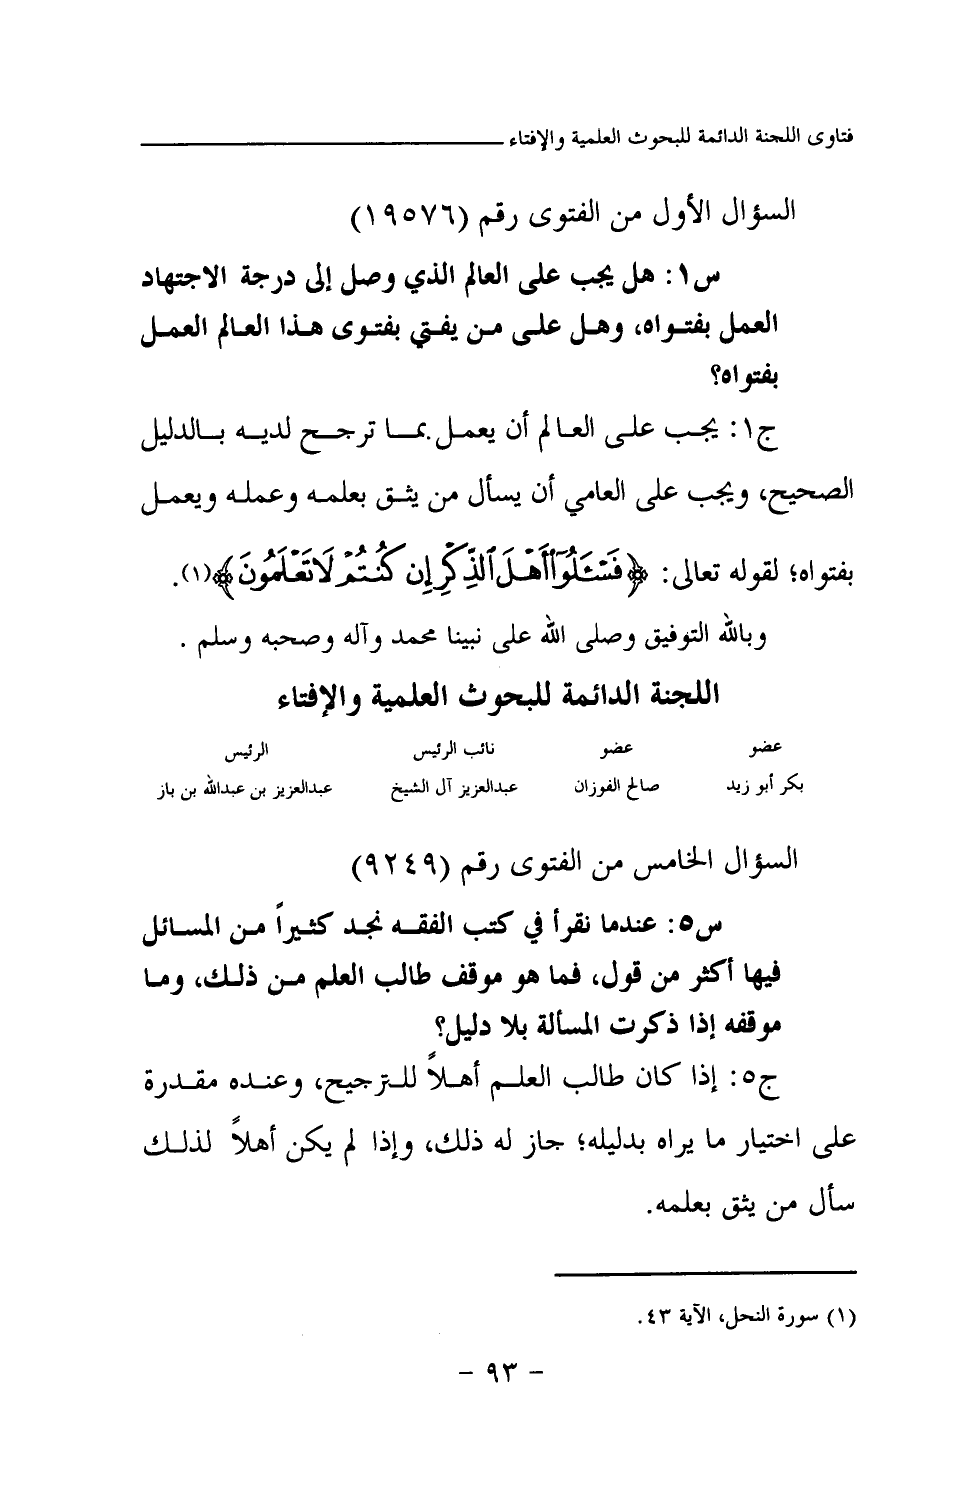 فتاوى اللجنة الدائمة للبحوث العلمية والإفتاء
السؤال الأول من الفتوى رقم (١٩٥٧٦)
س١: هل يجب على العالم الذي وصل إلى درجة الاجتهاد
العمل بفتواه، وهل على من يفتي بفتوى هذا العالم العمل
بفتواه؟
ج١: يجب على العالم أن يعمل بما ترجح لديه بالدليل
الصحيح، ويجب على العامي أن يسأل من يثق بعلمه وعمله ويعمل
بفتواه؛ لقوله تعالى: ﴿فَسْـَٔلُوٓا۟ أَهْلَ ٱلذِّكْرِ إِن كُنتُمْ لَا تَعْلَمُونَ﴾(١).
وبالله التوفيق وصلى الله على نبينا محمد وآله وصحبه وسلم .
اللجنة الدائمة للبحوث العلمية والإفتاء
عضو عضو نائب الرئيس الرئيس
بكر أبو زيد صالح الفوزان عبدالعزيز آل الشيخ عبدالعزيز بن عبدالله بن باز
السؤال الخامس من الفتوى رقم (٩٢٤٩)
س٥: عندما نقرأ في كتب الفقه نجد كثيراً من المسائل
فيها أكثر من قول، فما هو موقف طالب العلم من ذلك، وما
موقفه إذا ذكرت المسألة بلا دليل؟
ج٥: إذا كان طالب العلم أهلاً للترجيح، وعنده مقدرة
على اختيار ما يراه بدليله؛ جاز له ذلك، وإذا لم يكن أهلاً لذلك
سأل من يثق بعلمه.
(١) سورة النحل، الآية ٤٣.
- ٩٣ -